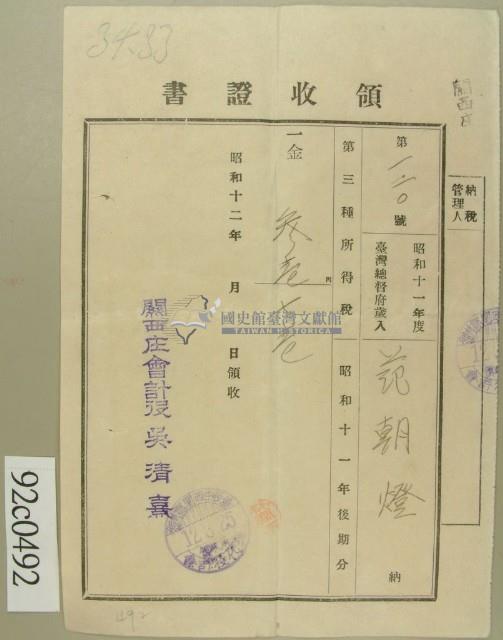 3433
領收證書
關西庄
納稅管理人
第一二〇號
昭和十一年度
臺灣總督府歲入
范朝燈
納
第三種所得稅
昭和十一年後期分
一金
圓
昭和十二年 月 日領收
關西庄會計役 吳清熹
國史館臺灣文獻館
TAIWAN HISTORICA
92c0492
492